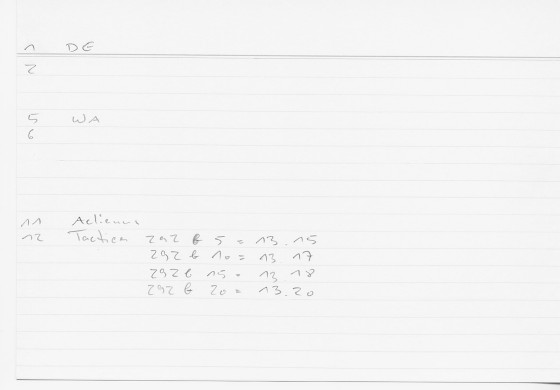 1 DE
2
5 WA
6
11 Aelianus
12 Tactica 292 b 5 = 13.15
292 b 10 = 13 17
292 b 15 = 13 18
292 b 20 = 13.20